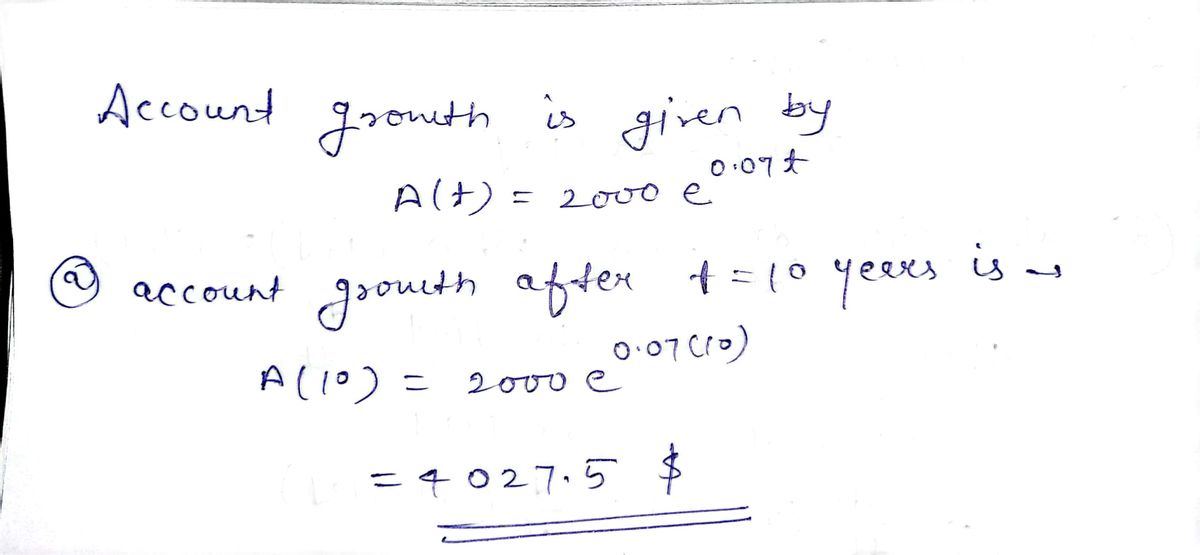 Account growth is given by
A(t) = 2000 e^0.07t
(a) account growth after t = 10 years is →
A(10) = 2000 e^0.07(10)
= 4027.5 $